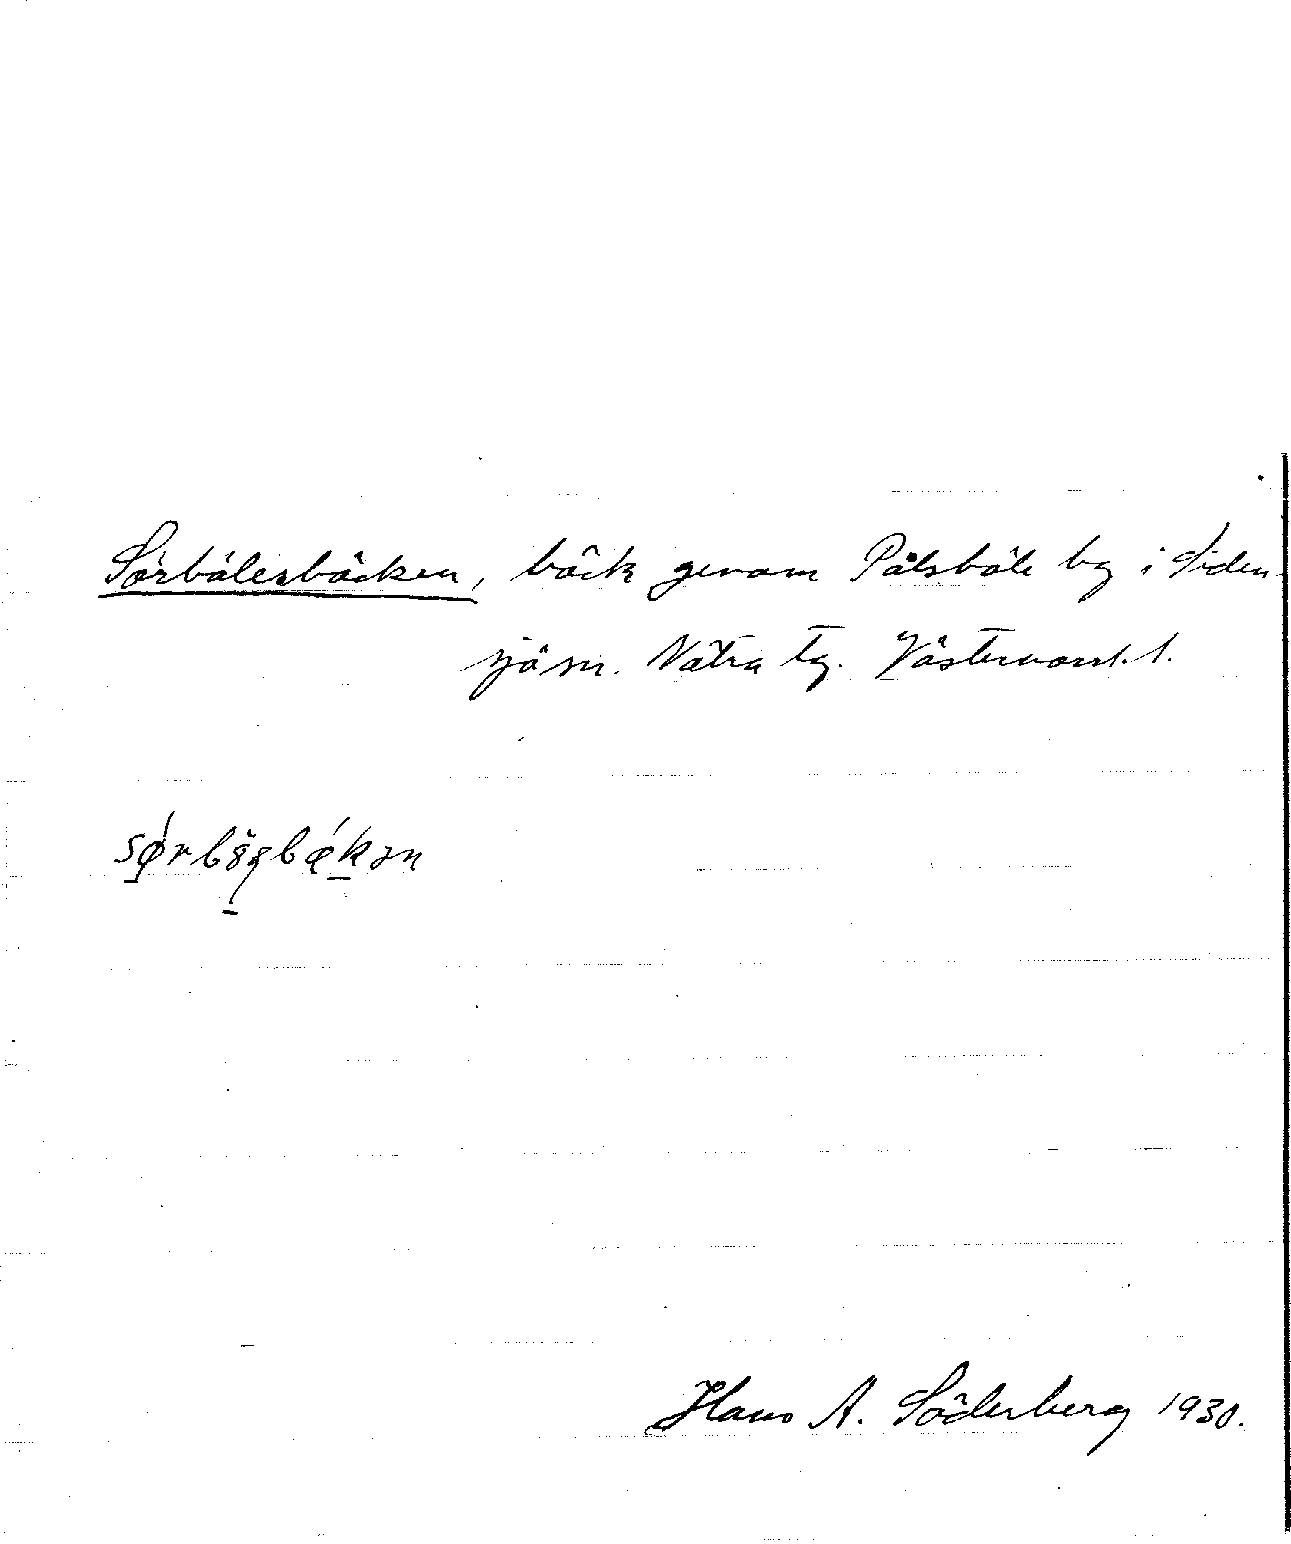 Sörbölesbäcken, bäck genom Pålsböle by i Siden-
sjö sn. Nätra tg. Västernorrl. l.
sørbö̀ʂbǽkən
Hans A. Söderberg 1930.